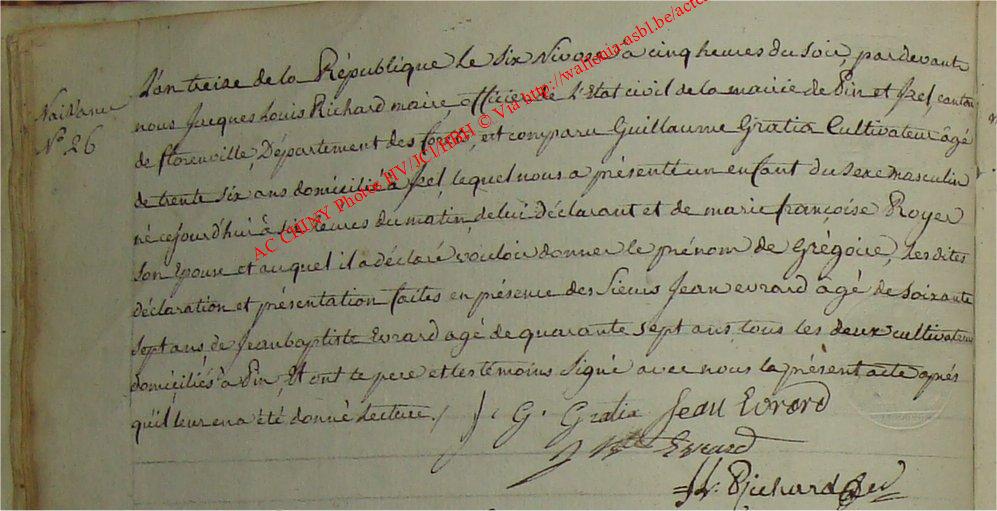 Naissance
N° 26
L'an treize de la République Le six Nivose à cinq heures du soir, pardevant
nous Jacques Louis Richard maire, officier de l'Etat civil de la mairie de Pin et Izel, canton
de florenville, Département des forets, est comparu Guillaume Gratia Cultivateur âgé
de trente six ans domicilié à Izel, lequel nous a présenté un enfant du sexe masculin
né cejourd'hui à six heures du matin, de lui déclarant et de marie françoise Royer
son Epouse et auquel il a déclaré vouloir donner le prénom de Grégoire, Les dites
déclaration et présentation faites en présence des Sieurs Jean evrard agé de soixante
sept ans de Jean baptiste Evrard agé de quarante sept ans, tous les deux cultivateurs
domiciliés à Pin, Et ont le pere et les témoins signé avec nous la présent acte après
qu'il leur en a été donné Lecture./ J. G. Gratia Jean Evrard
J Bte Evrard
J. L. Richard
AC CHINY Photos HV/JCI/HRH © Via http://wallonia-asbl.be/actes